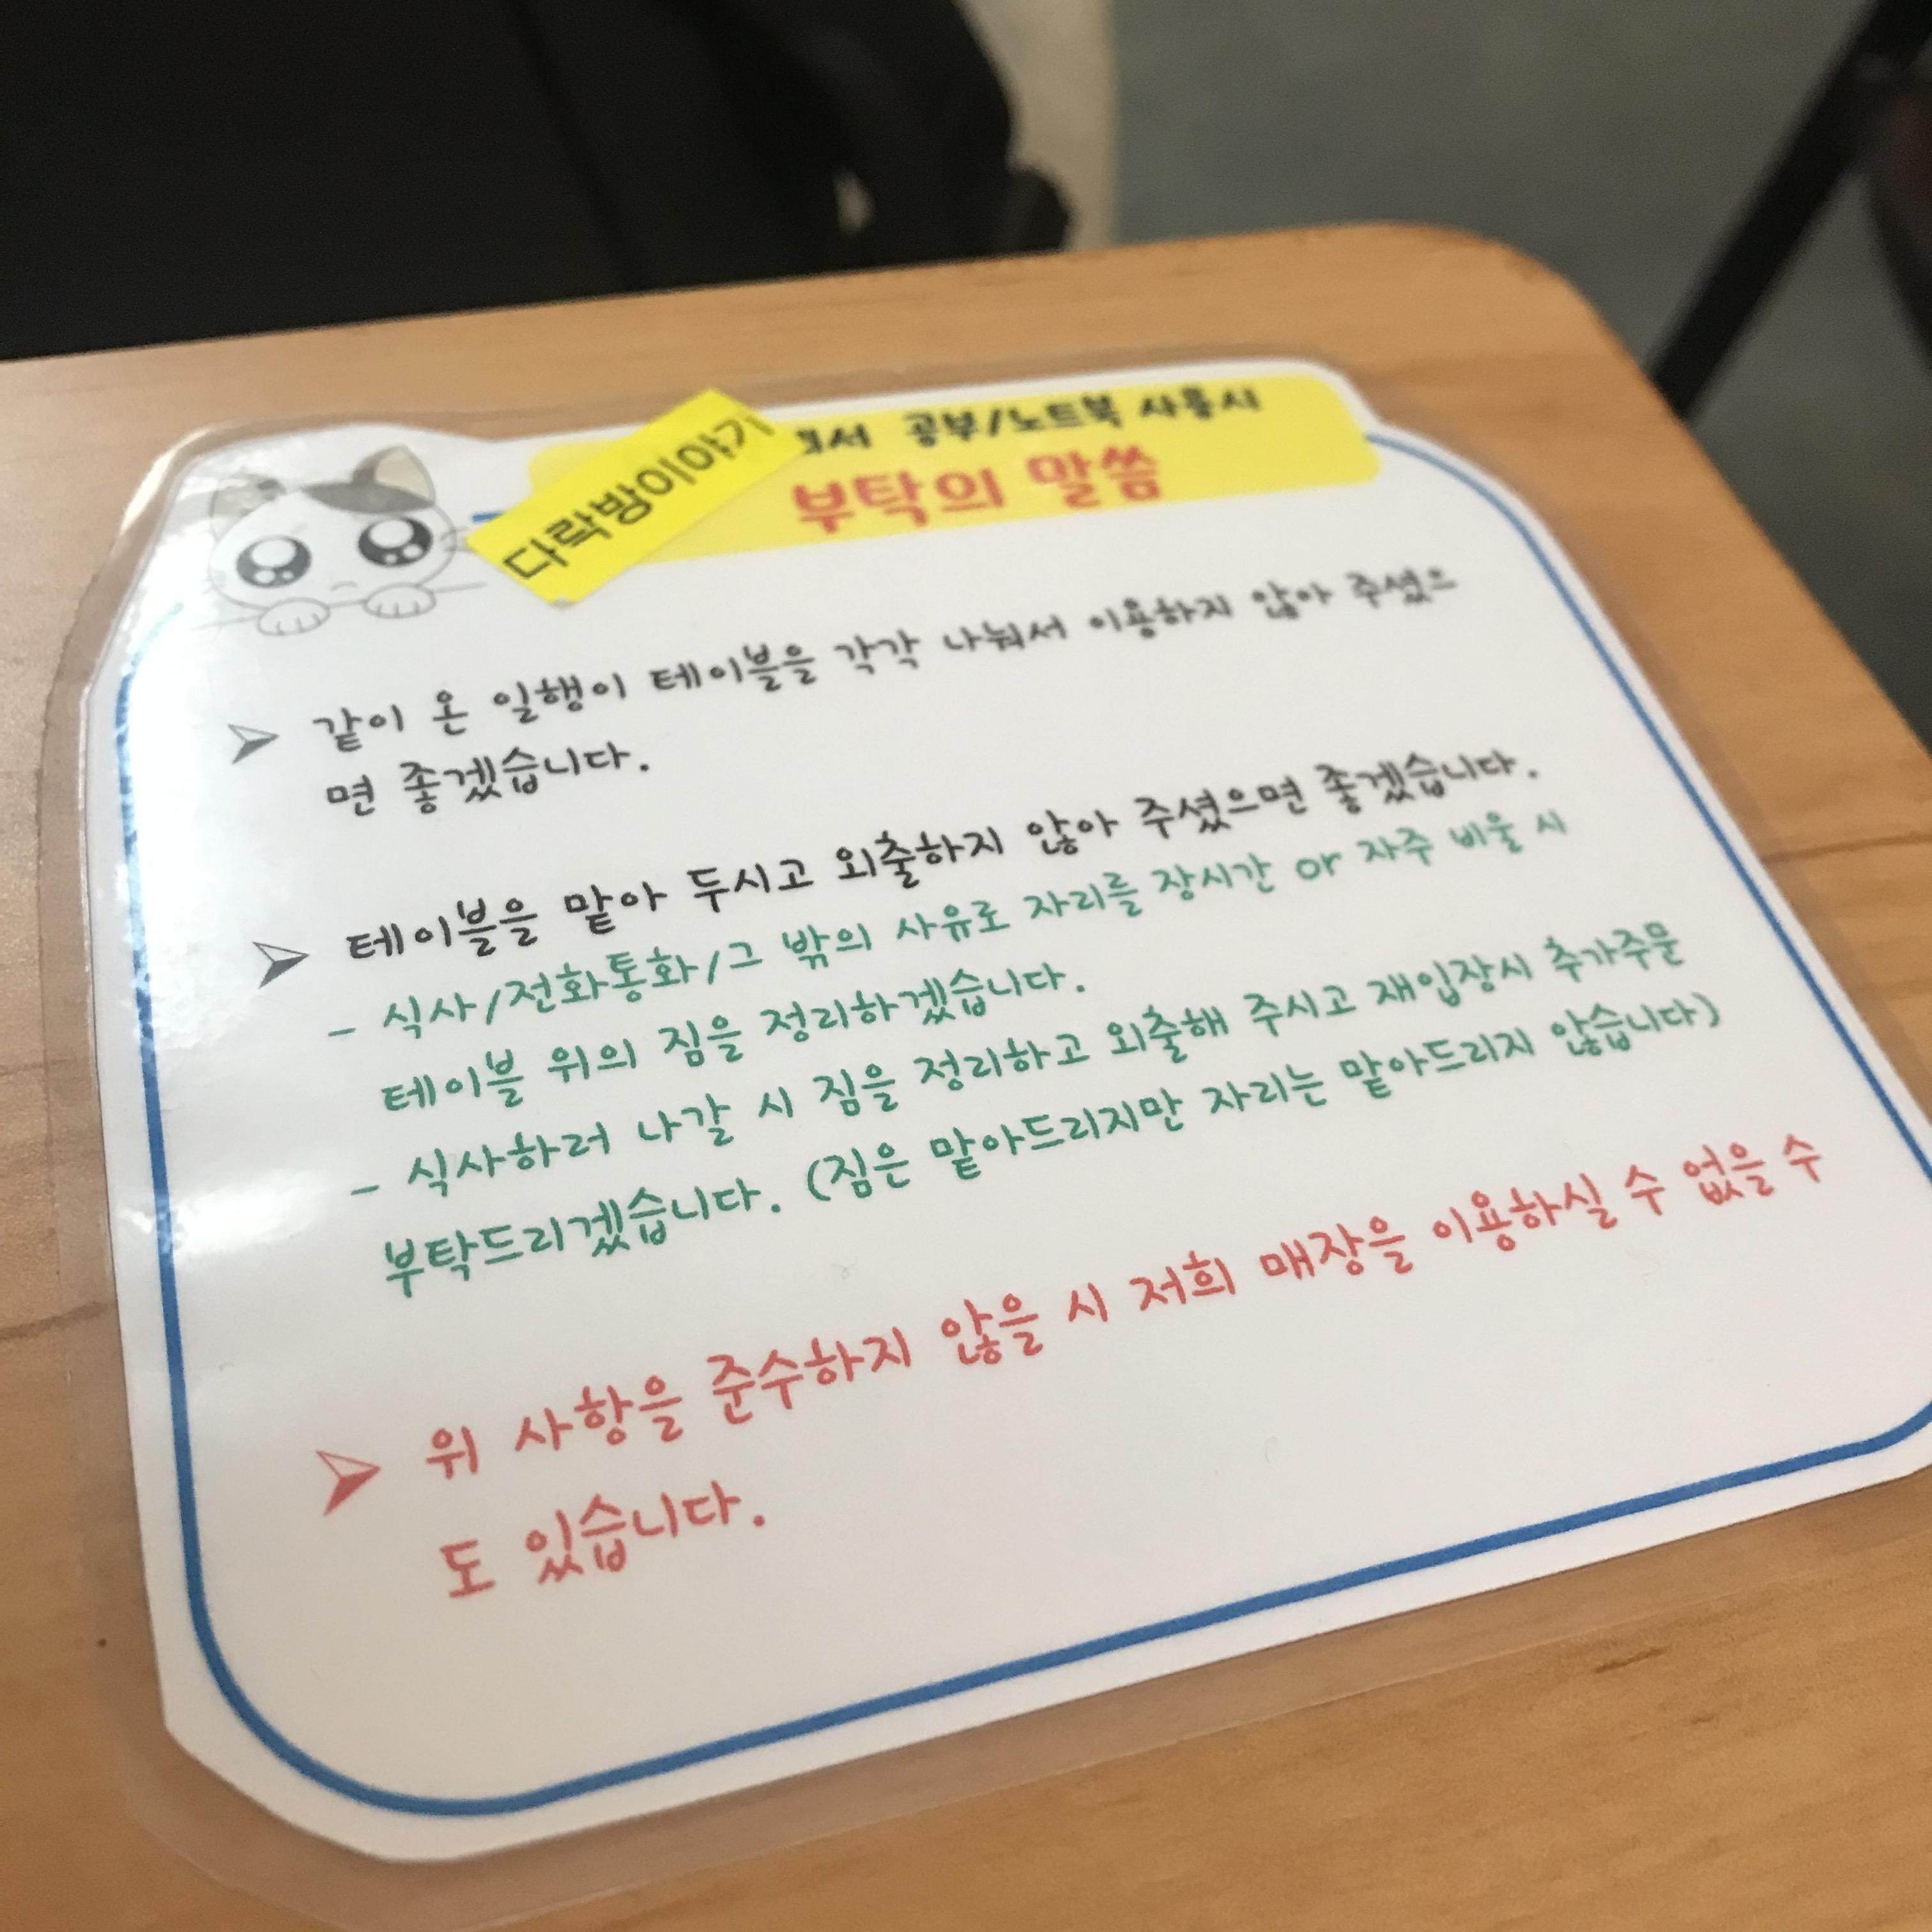 다락방이야기
공부/노트북 사용시
부탁의 말씀
➢ 같이 온 일행이 테이블을 각각 나눠서 이용하지 않아 주셨으
면 좋겠습니다.
➢ 테이블을 맡아 두시고 외출하지 않아 주셨으면 좋겠습니다.
- 식사/전화통화/그 밖의 사유로 자리를 장시간 or 자주 비울 시
테이블 위의 짐을 정리하겠습니다.
- 식사하러 나갈 시 짐을 정리하고 외출해 주시고 재입장시 추가주문
부탁드리겠습니다. (짐은 맡아드리지만 자리는 맡아드리지 않습니다)
➢ 위 사항을 준수하지 않을 시 저희 매장을 이용하실 수 없을 수
도 있습니다.